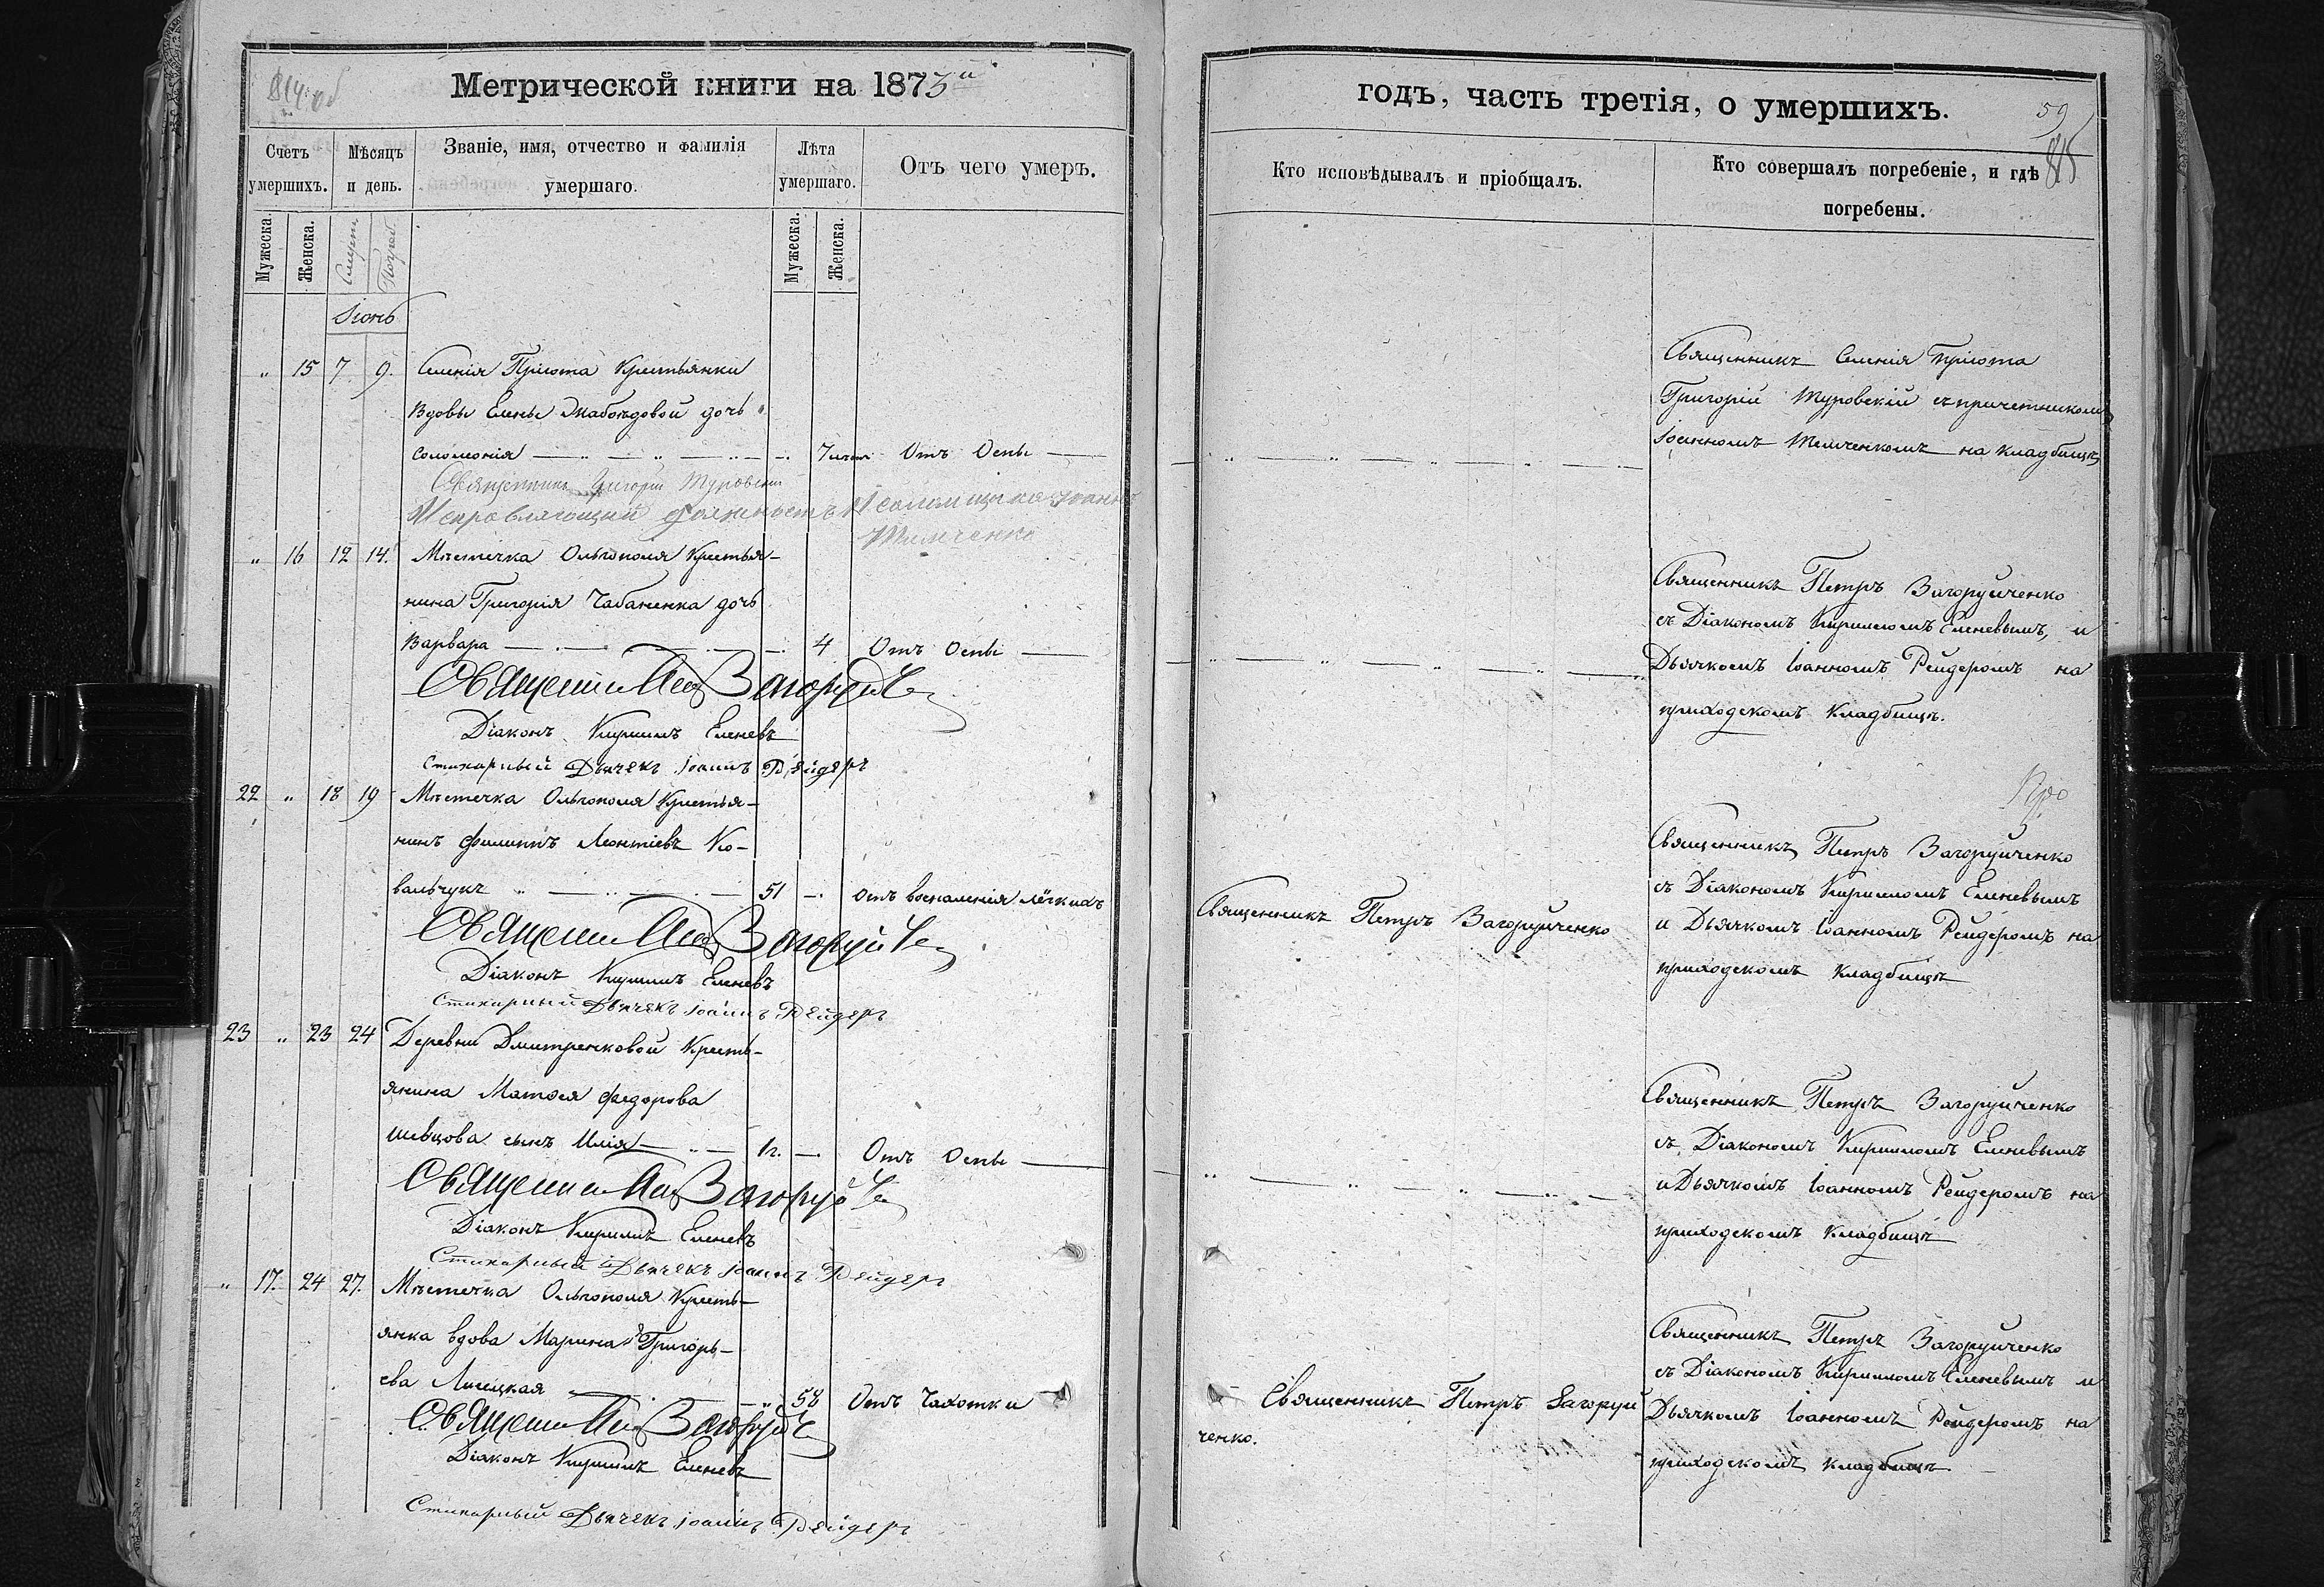 814 об
Метрической книги на 1873й
Счетъ умершихъ.
Мѣсяцъ и день.
Званіе, имя, отчество и фамилія умершаго.
Лѣта умершаго.
Отъ чего умеръ.
Мужеска.
Женска.
Смерти
Погреб
Мужеска.
Женска.
Іюнь
" 15 7 9. Селенія Пріюта Крестьянки
вдовы Елены дочь
Соломонія — 7 лѣт Отъ Оспы —
Священникъ Григорій Туровскій
Исправляющій должность Псаломщика Іоаннъ
Темченко
" 16 12 14. Мѣстечка Ольгополя Крестья-
нина Григорія Чабаненка дочь
Варвара — 4 Отъ Оспы —
Священникъ Загоруйче
Діаконъ Кириллъ Еленевъ
Стихарный Дьячекъ Іоаннъ Рейдеръ
22 " 18 19 Мѣстечка Ольгополя Крестья-
нинъ Филиппъ Леонтіевъ Ко-
вальчукъ " — 51 — отъ воспаленія лёгкихъ
Священникъ Загоруйче
Діаконъ Кириллъ Еленевъ
Стихарный Дьячекъ Іоаннъ Рейдеръ
23 " 23 24 Деревни Дмитренковой Кресть-
янина Матѳея Федорова
Шевцова сынъ Илія — 1 г. — Отъ Оспы —
Священникъ Загоруйче
Діаконъ Кириллъ Еленевъ
Стихарный Дьячекъ Іоаннъ Рейдеръ
" 17. 24 27. Мѣстечка Ольгополя Кресть-
янка вдова Марина Григорь-
ева Лисецкая — " 58 Отъ Чахотки
Священникъ Загоруйче
Діаконъ Кириллъ Еленевъ
Стихарный Дьячекъ Іоаннъ Рейдеръ
годъ, часть третія, о умершихъ.
59
815
Кто исповѣдывалъ и пріобщалъ.
Кто совершалъ погребеніе, и гдѣ погребены.
Священникъ Селенія Пріюта
Григорій Туровскій съ причетникомъ
Іоанномъ Темченкомъ на кладбищѣ
Священникъ Петръ Загоруйченко
съ Діакономъ Кирилломъ Еленевымъ, и
Дьячкомъ Іоанномъ Рейдеромъ на
приходскомъ кладбищѣ.
Священникъ Петръ Загоруйченко
Священникъ Петръ Загоруйченко
съ Діакономъ Кирилломъ Еленевымъ
и Дьячкомъ Іоанномъ Рейдеромъ на
приходскомъ кладбищѣ
Священникъ Петръ Загоруйченко
съ Діакономъ Кирилломъ Еленевымъ
и Дьячкомъ Іоанномъ Рейдеромъ на
приходскомъ кладбищѣ
Священникъ Петръ Загоруй
ченко.
Священникъ Петръ Загоруйченко
съ Діакономъ Кирилломъ Еленевымъ и
Дьячкомъ Іоанномъ Рейдеромъ на
приходскомъ кладбищѣ